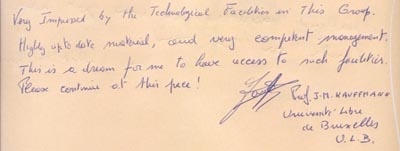 Very Impressed by the Technological Facilities in This Group.
Highly up to date material, and very competent management.
This is a dream for me to have access to such facilities.
Please continue at this pace!
Prof. J.M. KAUFFMANN
Université Libre
de Bruxelles
U.L.B.